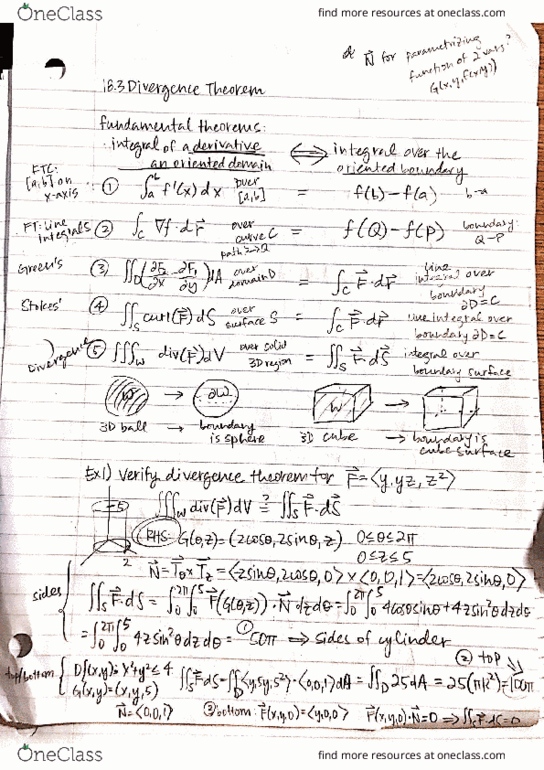 OneClass
find more resources at oneclass.com
N⃗ for parametrizing
function of 2 vars?
G(x,y,f(x,y))
18.3 Divergence Theorem
fundamental theorems:
integral of a derivative ⟺ integral over the
an oriented domain oriented boundary
FTC:
[a,b] on
x-axis
① ∫ₐᵇ f'(x)dx over [a,b] = f(b)-f(a) b-a
FT: line
integrals ② ∫_C ∇f·dr⃗ over curve C = f(Q)-f(P) boundary:
Q-P
Green's ③ ∬_D (∂F₂/∂x - ∂F₁/∂y)dA over domain D = ∫_C F⃗·dr⃗ line integral over
boundary
∂D=C
Stokes' ④ ∬_S curl(F⃗)dS over surface S = ∫_C F⃗·dr⃗ line integral over
boundary ∂D=C
Divergence ⑤ ∭_W div(F⃗)dV over solid 3D region = ∬_S F⃗·dS⃗ integral over
boundary surface
W → ∂W W →
3D ball → boundary is sphere 3D cube → boundary is cube surface
Ex1) Verify divergence theorem for F⃗=⟨y,yz,z²⟩
∭_W div(F⃗)dV ≟ ∬_S F⃗·dS⃗
5
2
RHS: G(θ,z)=(2cosθ,2sinθ,z) 0≤θ≤2π
0≤z≤5
N⃗=T⃗_θ×T⃗_z=⟨-2sinθ,2cosθ,0⟩×⟨0,0,1⟩=⟨2cosθ,2sinθ,0⟩
sides
∬_S F⃗·dS⃗=∫₀^2π∫₀⁵ F⃗(G(θ,z))·N⃗ dzdθ=∫₀^2π∫₀⁵ 4cosθsinθ+4zsin²θdzdθ
=∫₀^2π∫₀⁵ 4zsin²θdzdθ=① 50π ⟹ sides of cylinder
② top
top/bottom { D{(x,y): x²+y²≤4 ∬_S F⃗·dS=∬_D⟨y,5y,5²⟩·⟨0,0,1⟩dA=∬_D 25dA=25(π2²)=100π
G(x,y)=(x,y,5)
N⃗=⟨0,0,1⟩ ③ bottom: F⃗(x,y,0)=⟨y,0,0⟩ F⃗(x,y,0)·N⃗=0 ⟹ ∬_S F⃗·dS=0
OneClass
find more resources at oneclass.com